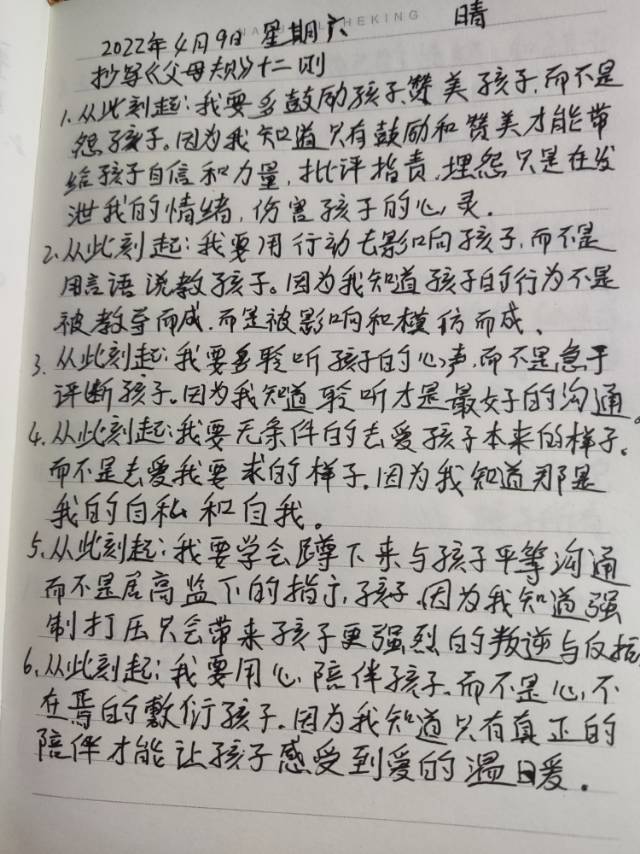 2022年4月9日 星期六 晴
抄写《父母规》十二则
1.从此刻起:我要多鼓励孩子,赞美孩子,而不是
怨孩子。因为我知道只有鼓励和赞美才能带
给孩子自信和力量,批评指责,埋怨只是在发
泄我的情绪,伤害孩子的心灵.
2.从此刻起:我要用行动去影响孩子,而不是
用言语说教孩子。因为我知道孩子的行为不是
被教导而成.而是被影响和模仿而成、
3.从此刻起:我要多聆听孩子的心声,而不是急于
评断孩子。因为我知道聆听才是最好的沟通。
4.从此刻起:我要无条件的去爱孩子本来的样子。
而不是去爱我要求的样子.因为我知道那是
我的自私和自我。
5.从此刻起:我要学会蹲下来与孩子平等沟通
而不是居高监下的指示孩子.因为我知道强
制打压只会带来孩子更强烈的叛逆与反抗
6.从此刻起:我要用心陪伴孩子.而不是心不
在焉的敷衍孩子.因为我知道只有真正的
陪伴才能让孩子感受到爱的温暖.